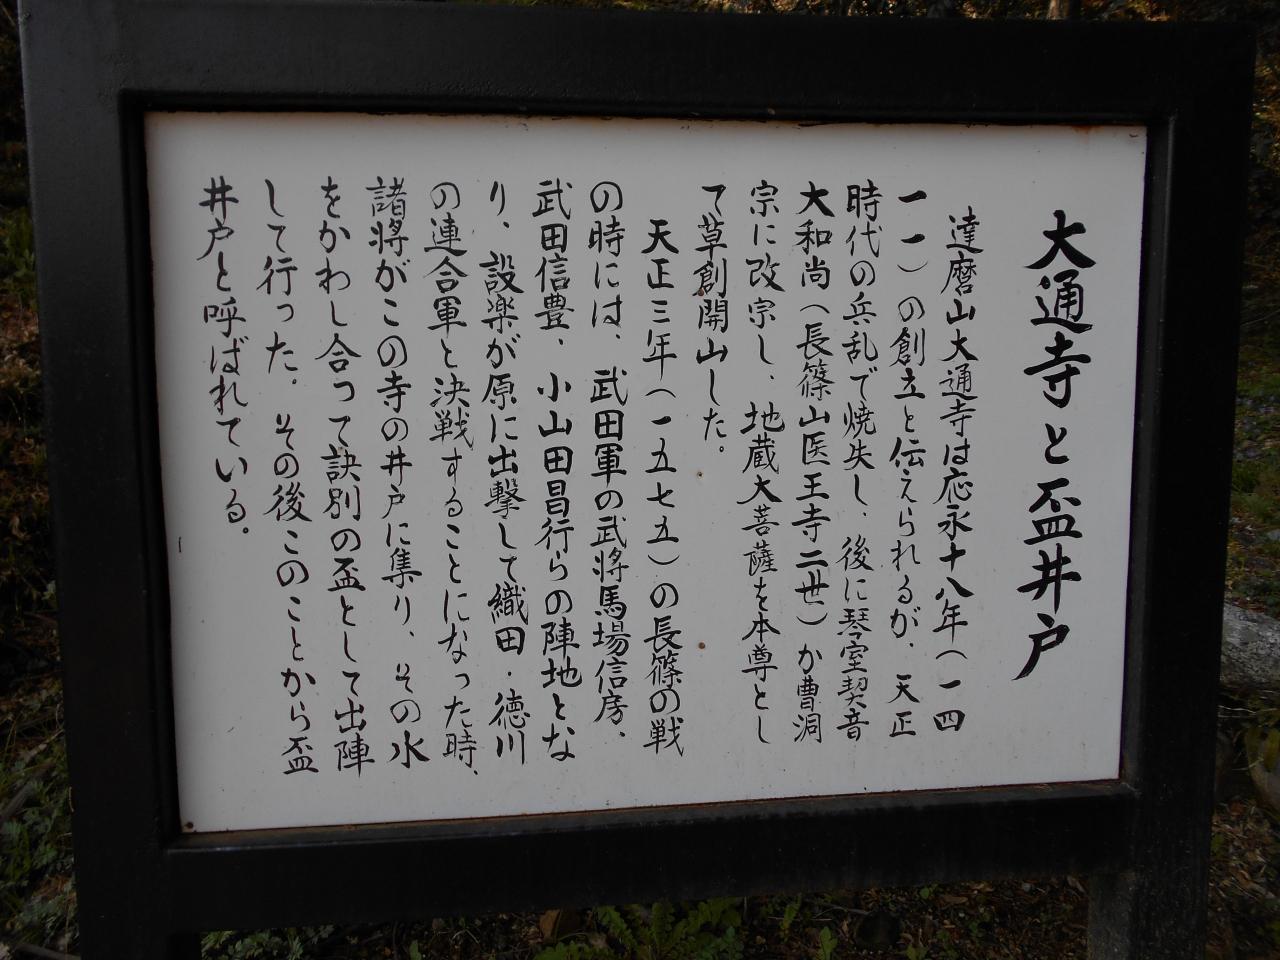 大通寺と盃井戸
達磨山大通寺は応永十八年（一四
一一）の創立と伝えられるが、天正
時代の兵乱で焼失し、後に琴室契音
大和尚（長篠山医王寺二世）か曹洞
宗に改宗し、地蔵大菩薩を本尊とし
て草創開山した。
天正三年（一五七五）の長篠の戦
の時には、武田軍の武将馬場信房、
武田信豊、小山田昌行らの陣地とな
り、設楽が原に出撃して織田・徳川
の連合軍と決戦することになった時、
諸将がこの寺の井戸に集り、その水
をかわし合って訣別の盃として出陣
して行った。その後このことから盃
井戸と呼ばれている。